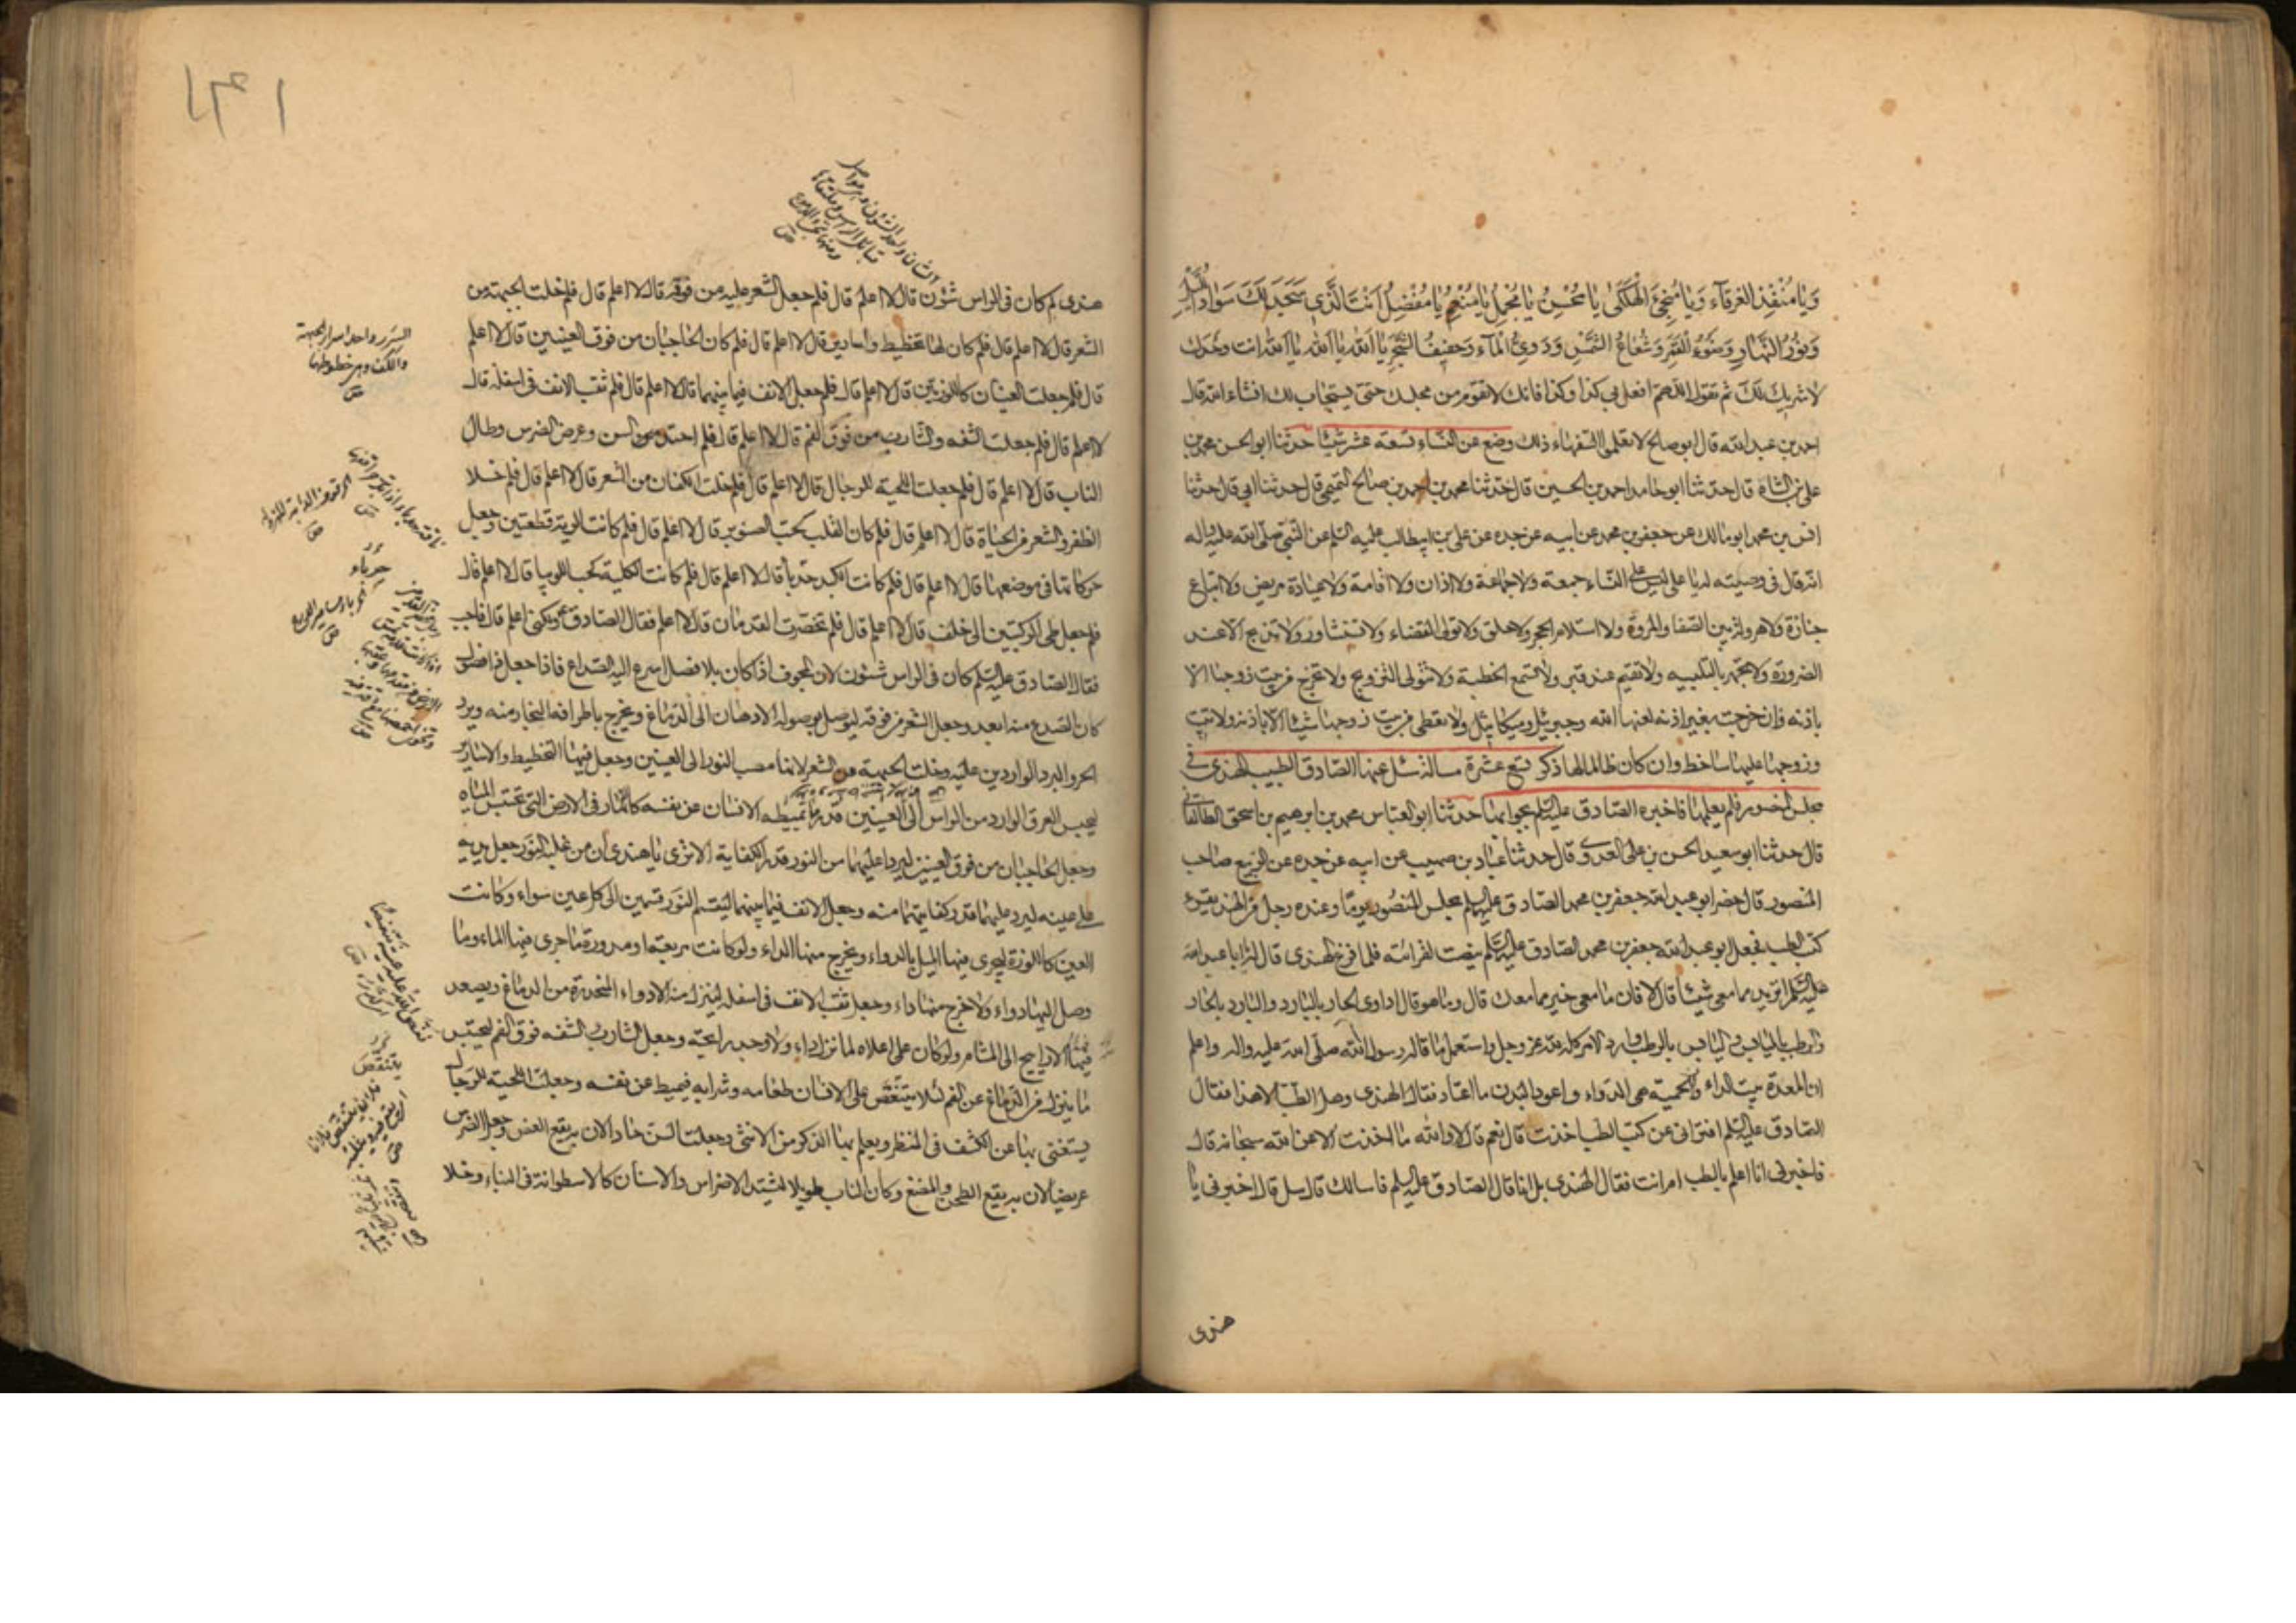 وَيَا مُنْقِذَ الغَرْقَآءِ وَيَا مُنْجِيَ الْهَلْكَىٰ يَا مُحْسِنُ يَا مُجْمِلُ يَا مُنْعِمُ يَا مُفْضِلُ اَنْتَ الَّذِي سَجَدَ لَكَ سَوَادُ اللَّيْلِ
وَنُورُ النَّهَارِ وَضَوْءُ الْقَمَرِ وَشُعَاعُ الشَّمْسِ وَدَوِيُّ الْمَآءِ وَحَفِيفُ الشَّجَرِ يَا اَللّٰهُ يَا اَللّٰهُ يَا اَللّٰهُ انت وَحْدَكَ
لَا شَرِيكَ لَكَ ثم تقول اللّٰهمّ افعل بي كذا وكذا فانك لا تقوم من مجلسك حتى يستجاب لك انشاء الله قال
احمد بن عبد الله قال ابو صالح لا تعلموا السفهاء ذلك وضع عن النساء تسعة عشر شيئا حدثنا ابو الحسن محمد بن
علي بن الشاه قال حدثنا ابو حامد احمد بن الحسين قال حدثنا محمد بن احمد بن صالح التميمي قال حدثنا ابي قال حدثنا
انس بن محمد ابو مالك عن جعفر بن محمد عن ابيه عن جده عن علي بن ابيطالب عليه السلم عن النبي صلى الله عليه واله
انه قال في وصيته له يا علي ليس على النساء جمعة ولا جماعة ولا اذان ولا اقامة ولا عيادة مريض ولا اتباع
جنازة ولا هرولة بين الصفا والمروة ولا استلام الحجر ولا حلق ولا تولى القضاء ولا تستشار ولا تذبح الا عند
الضرورة ولا تجهر بالتلبية ولا تقيم عند قبر ولا تسمع الخطبة ولا تتولى التزويج ولا تخرج من بيت زوجها الا
باذنه فان خرجت بغير اذنه لعنها الله وجبرئيل وميكائيل ولا تعطى من بيت زوجها شيئا الا باذنه ولا تبيت
وزوجها عليها ساخط وان كان ظالما لها ذكر تسع عشرة مسالة سئل عنها الصادق الطبيب الهندى في
مجلس المنصور فلم يعلمها فاخبره الصادق عليه السلم بجوابها حدثنا ابو العباس محمد بن ابرهيم بن اسحق الطالقاني
قال حدثنا ابو سعيد الحسن بن علي العدوى قال حدثنا عباد بن صهيب عن ابيه عن جده عن الربيع صاحب
المنصور قال حضر ابو عبد الله جعفر بن محمد الصادق عليه السلم مجلس المنصور يوما وعنده رجل من الهند يقرء
كتب الطب فجعل ابو عبد الله جعفر بن محمد الصادق عليه السلم ينصت لقرائته فلما فرغ الهندى قال له يا ابا عبد الله
عليه السلم اتريد مما معي شيئا قال لا فان ما معى خير مما معك قال وما هو قال اداوى الحار بالبارد والبارد بالحار
والرطب باليابس واليابس بالرطب وارد الامر كله لله عز وجل واستعمل ما قاله رسول الله صلى الله عليه واله واعلم
ان المعدة بيت الداء والحمية هي الدواء واعود البدن ما اعتاد فقال الهندى وهل الطب الا هذا فقال
الصادق عليه السلم افتراني عن كتب الطب اخذت قال نعم قال لا والله ما اخذت الا عن الله سبحانه قال
فاخبرني انا اعلم بالطب ام انت فقال الهندى بل انا قال الصادق عليه السلم فاسالك قال سل قال اخبرني يا
هندى
١٤١
هندى لم كان في الراس شئون قال لا اعلم قال فلم جعل الشعر عليه من فوقه قال لا اعلم قال فلم خلت الجبهة من
الشعر قال لا اعلم قال فلم كان لها تخطيط واسارير قال لا اعلم قال فلم كان الحاجبان من فوق العينين قال لا اعلم
قال فلم جعلت العينان كاللوزتين قال لا اعلم قال فلم جعل الانف فيما بينهما قال لا اعلم قال فلم ثقب الانف في اسفله قال
لا اعلم قال فلم جعلت الشفه والشارب من فوق الفم قال لا اعلم قال فلم احتد السن وعرض الضرس وطال
الناب قال لا اعلم قال فلم جعلت اللحية للرجال قال لا اعلم قال فلم خلت الكفان من الشعر قال لا اعلم قال فلم خلا
الظفر والشعر من الحياة قال لا اعلم قال فلم كان القلب كحب الصنوبر قال لا اعلم قال فلم كانت الرية قطعتين وجعل
حركاتها في موضعها قال لا اعلم قال فلم كانت الكبد حدباء قال لا اعلم قال فلم كانت الكلية كحب اللوبيا قال لا اعلم قال
فلم جعل طى الركبتين الى خلف قال لا اعلم قال فلم تخصرت القدمان قال لا اعلم فقال الصادق ع لكنى اعلم قال فاجب
فقال الصادق عليه السلم كان في الراس شئون لان المجوف اذا كان بلا فصل اسرع اليه الصداع فاذا جعل ذا فصول
كان الصدع منه ابعد وجعل الشعر من فوقه ليوصل بوصوله الادهان الى الدماغ ويخرج باطرافه البخار منه ويرد
الحر والبرد الواردين عليه وخلت الجبهة من الشعر لانها مصب النور الى العينين وجعل فيها التخطيط والاسارير
ليحبس العرق الوارد من الراس الى العينين قدر ما يميطه الانسان عن نفسه كالانهار في الارض التي تحبس المياه
وجعل الحاجبان من فوق العينين ليردا عليهما من النور قدر الكفاية الا ترى يا هندى ان من غلبه النور جعل يديه
على عينيه ليرد عليهما قدر كفايتهما منه وجعل الانف فيما بينهما ليقسم النور قسمين الى كل عين سواء وكانت
العين كاللوزة ليجرى فيها الميل بالدواء ويخرج منها الداء ولو كانت مربعة او مدورة ما جرى فيها الماء وما
وصل اليها دواء ولا خرج منها داء وجعل ثقب الانف في اسفله لينزل منه الادواء المنحدرة من الدماغ ويصعد
فيه الاراييح الى المشام ولو كان على اعلاه لما نزل داء ولا وجد رائحة وجعل الشارب والشفه فوق الفم ليحتبس
ما ينزل من الدماغ عن الفم لئلا يتنغص على الانسان طعامه وشرابه فيميط عن نفسه وجعلت اللحية للرجال
يستغنى بها عن الكشف في المنظر ويعلم بها الذكر من الانثى وجعلت السن حادا لان به يقع العض وجعل الضرس
عريضا لان به يقع الطحن والمضغ وكان الناب طويلا ليشتد الاضراس والاسنان كالاسطوانة في البناء وخلا
السرر واحد اسرار الجبهة
والكف وهى خطوطها